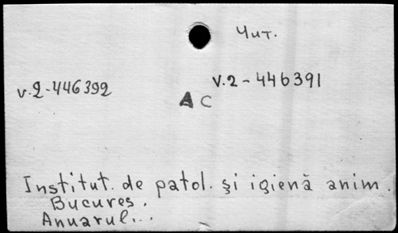 Чит.
v.2-446392 v.2-446391
A C
Institut. de patol. și igienă anim.
Bucureș.
Anuarul...